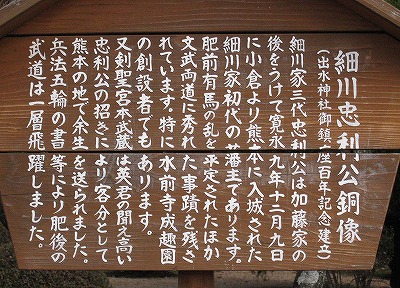 細川忠利公銅像
（出水神社御鎮座百年記念建立）
細川家三代忠利公は加藤家の
後をうけて寛永九年十二月九日
に小倉より熊本に入城された
細川家初代の藩主であります。
肥前有馬の乱を平定されたほか
文武両道に秀れた事蹟を残さ
れています。特に水前寺成趣園
の創設者でもあります。
又剣聖宮本武蔵は英君の聞え高い
忠利公の招きにより客分として
熊本の地で余生を送られました。
兵法五輪の書等により肥後の
武道は一層飛躍しました。